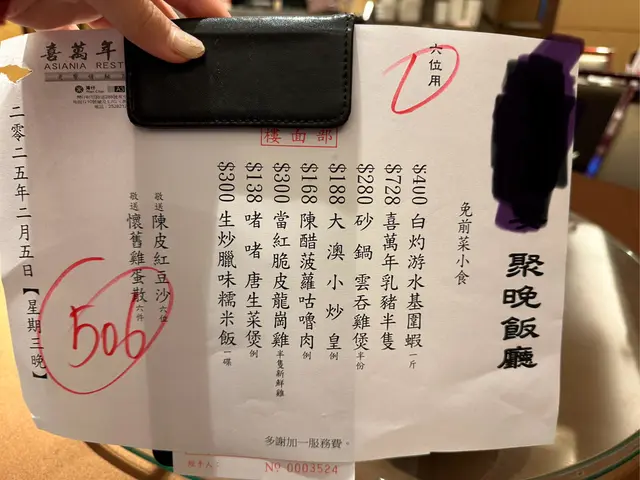 六位用
聚晚飯廳
免前菜小食
$400 白灼游水基圍蝦 一斤
$728 喜萬年乳豬半隻
$280 砂鍋雲吞雞煲 半份
$188 大澳小炒皇 例
$168 陳醋菠蘿咕嚕肉 例
$300 當紅脆皮龍崗雞 半隻新鮮雞
$138 啫啫唐生菜煲 例
$300 生炒臘味糯米飯 一碟
敬送 陳皮紅豆沙 六位
敬送 懷舊雞蛋散 六件
二零二五年二月五日【星期三晚】
多謝加一服務費。
樓面部
喜萬年
ASIANIA REST
506
經手人：
No 0003524